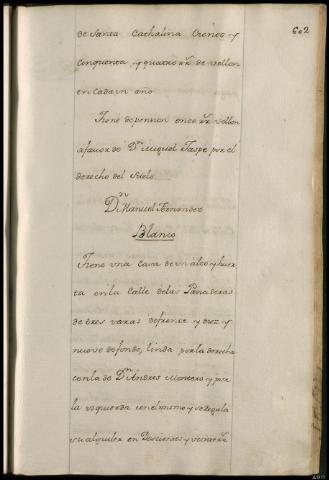 602
de Santa Cathalina Cienos y
cinquenta y quatro rr.s de vellon
en cada un año
Tiene de pension once rr.s vellon
a favor de Dn Miguel Taspe por el
derecho del Suelo
Dn Manuel Fernandez
Blanco
Tiene una Casa de un alto y huer
ta en la Calle de las Panaderas
de tres varas de frente y diez y
nueve de fondo, linda por la derecha
con la de Dn Andres Montero y por
la izquierda con el mismo y se regula
su alquiler en Doscientos y veinte rr.s